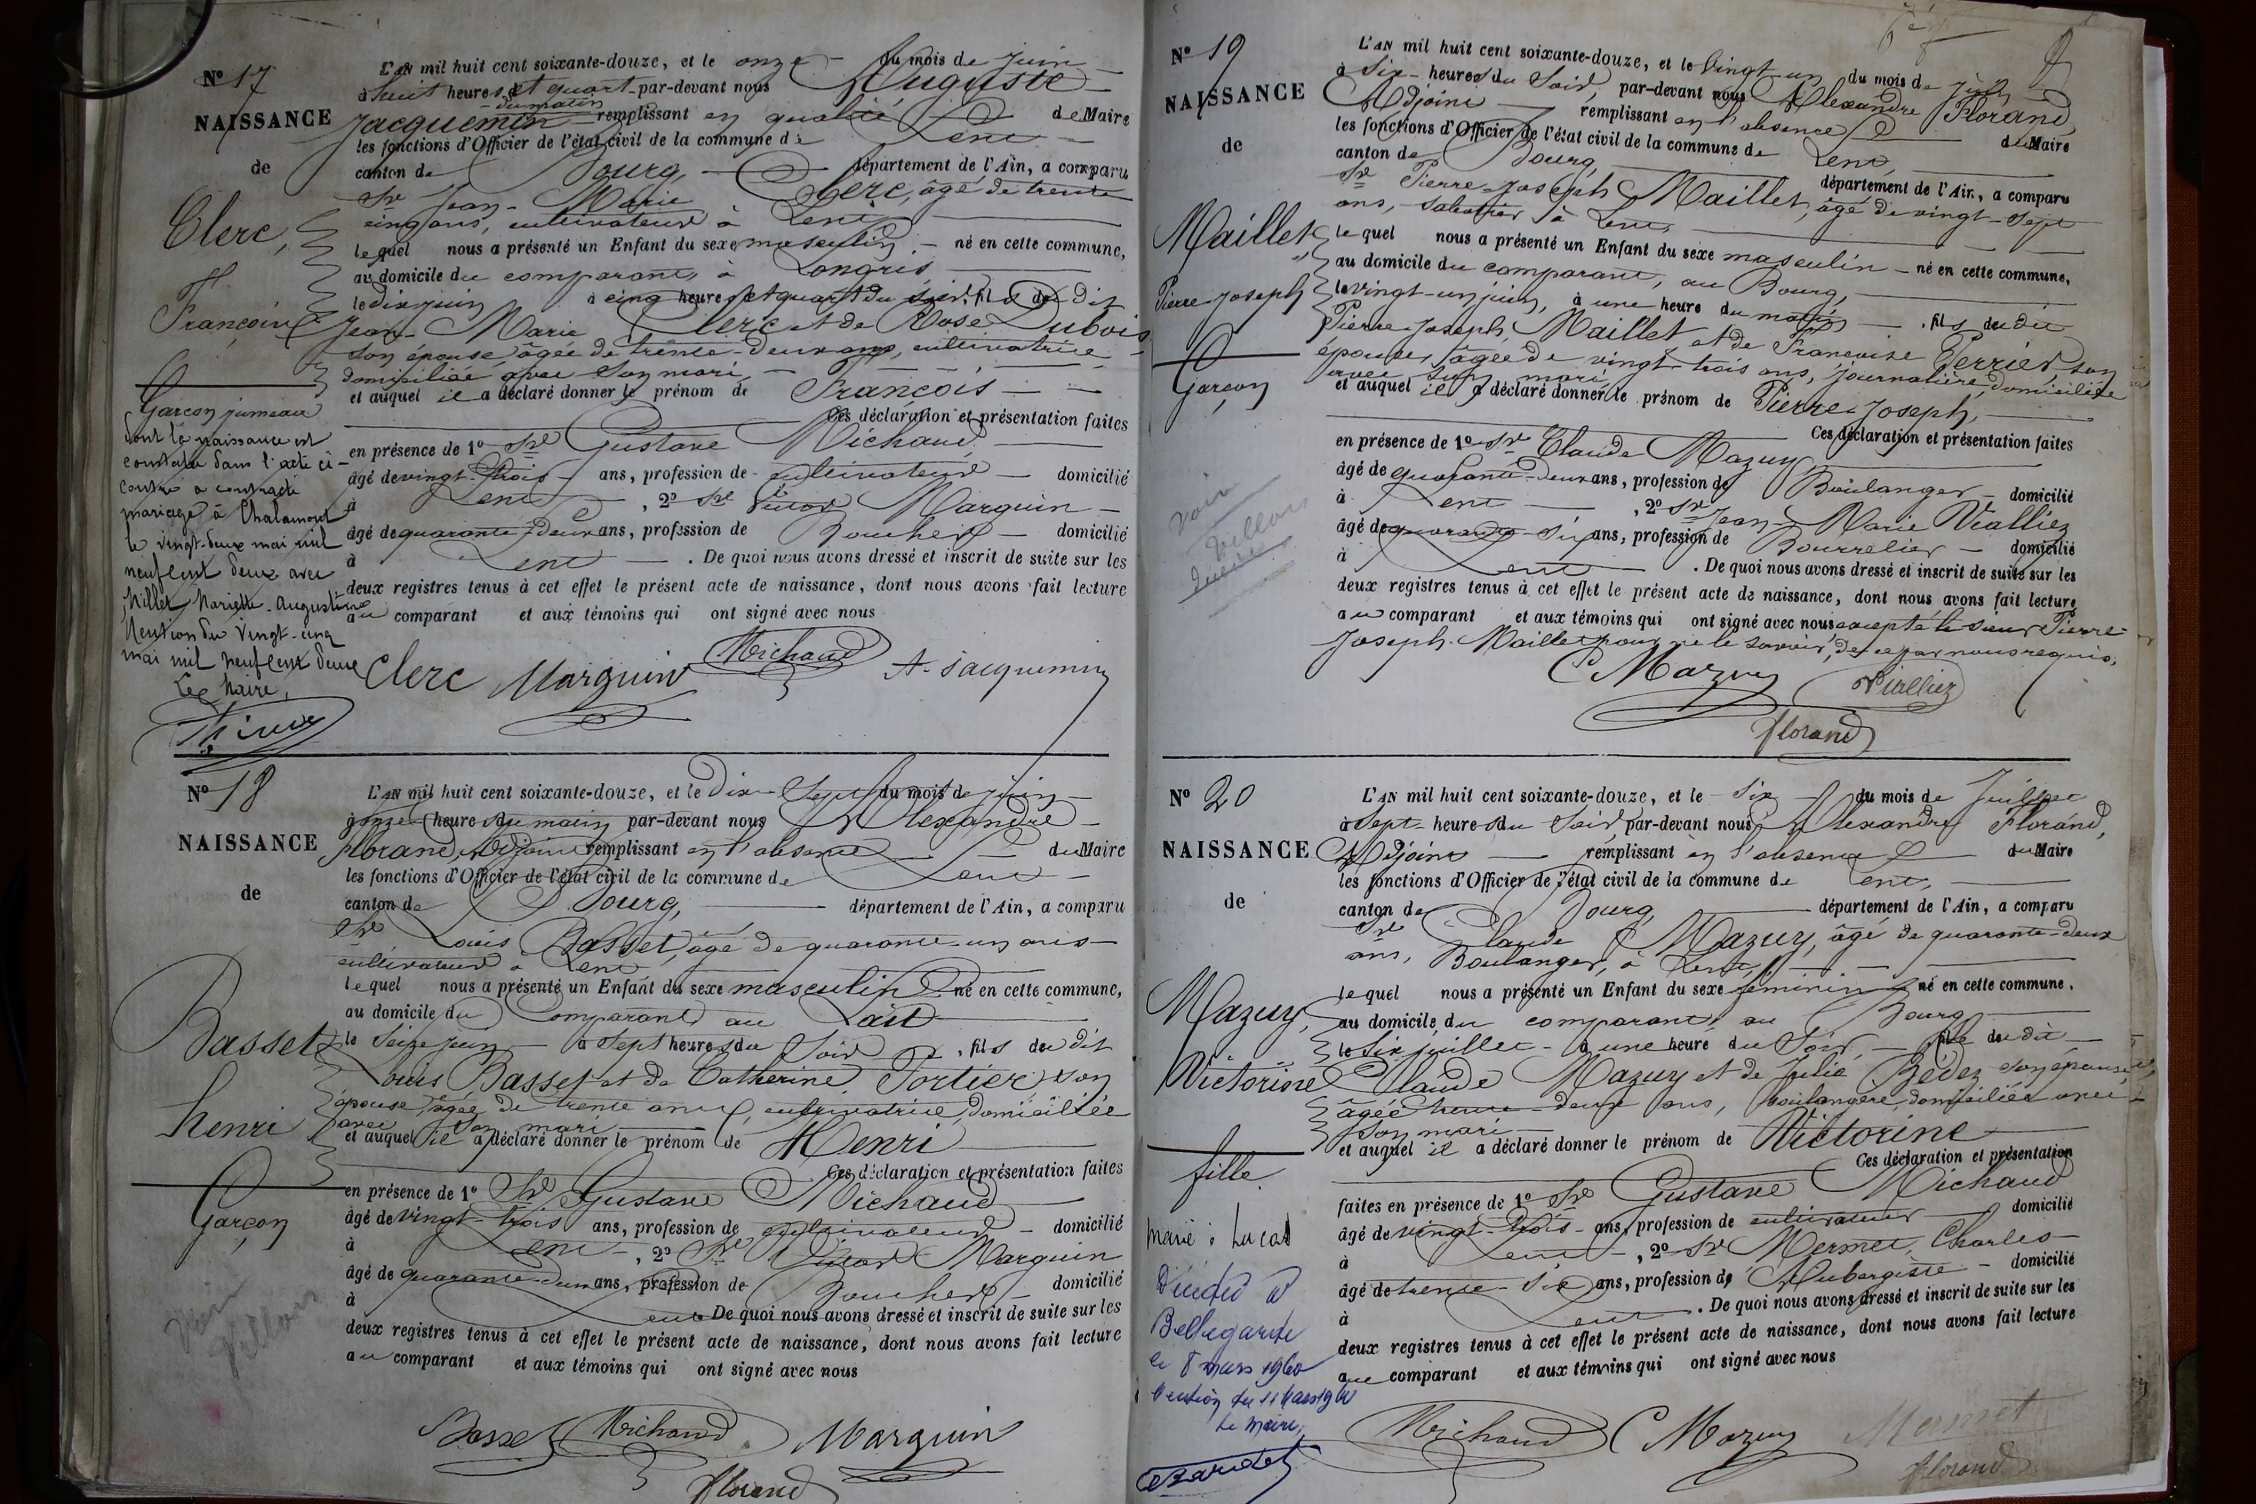 Nº 17
NAISSANCE
de
Clerc,
François
Garçon jumeau
dont la naissance est
constatée dans l'acte ci-
contre a contracté
mariage à Chalamont
le vingt-deux mai mil
neuf cent deux avec
Millet Mariette-Augustine
Mention du vingt-cinq
mai mil neuf cent deux
Le Maire,
L'AN mil huit cent soixante-douze, et le onze du mois de juin
à huit heures et quart par-devant nous Auguste
du matin
Jacquemin remplissant en qualité de Maire
les fonctions d'Officier de l'état civil de la commune de Lent
canton de Bourg, département de l'Ain, a comparu
Sr Jean-Marie Clerc, âgé de trente
cinq ans, cultivateur à Lent
lequel nous a présenté un Enfant du sexe masculin né en cette commune,
au domicile du comparant, à Longris
le dix juin à cinq heures et quart du soir, fils du dit
Jean-Marie Clerc et de Rose Dubois
son épouse âgée de trente-deux ans, cultivatrice
domiciliée avec son mari
et auquel il a déclaré donner le prénom de François
Ces déclaration et présentation faites
en présence de 1º Sr Gustave Michaud
âgé de vingt-trois ans, profession de cultivateur domicilié
à Lent, 2º Sr Victor Marguin
âgé de quarante-deux ans, profession de Boucher domicilié
à Lent. De quoi nous avons dressé et inscrit de suite sur les
deux registres tenus à cet effet le présent acte de naissance, dont nous avons fait lecture
au comparant et aux témoins qui ont signé avec nous
Clerc Marguin Michaud A. Jacquemin
Nº 18
NAISSANCE
de
Basset
henri
Garçon
L'AN mil huit cent soixante-douze, et le Dix-Sept du mois de juin
à onze heures du matin par-devant nous Alexandre
Florand, Adjoint remplissant en l'absence du Maire
les fonctions d'Officier de l'état civil de la commune de Lent
canton de Bourg, département de l'Ain, a comparu
Sr Louis Basset, âgé de quarante-un ans
cultivateur à Lent
lequel nous a présenté un Enfant du sexe masculin né en cette commune,
au domicile du Comparant au
le Seize juin à Sept heures du Soir, fils du dit
Louis Basset et de Catherine Portier son
épouse, âgée de trente ans, cultivatrice, domiciliée
avec son mari
et auquel il a déclaré donner le prénom de Henri
Ces déclaration et présentation faites
en présence de 1º Sr Gustave Michaud
âgé de vingt-trois ans, profession de cultivateur domicilié
à Lent, 2º Sr Victor Marguin
âgé de quarante-deux ans, profession de Boucher domicilié
à Lent. De quoi nous avons dressé et inscrit de suite sur les
deux registres tenus à cet effet le présent acte de naissance, dont nous avons fait lecture
au comparant et aux témoins qui ont signé avec nous
Basset Michaud Marguin
florand
Nº 19
NAISSANCE
de
Maillet
Pierre Joseph
Garçon
voir
L'AN mil huit cent soixante-douze, et le Vingt-un du mois de juin
à Six heures du Soir, par-devant nous Alexandre Florand
Adjoint remplissant en l'absence du Maire
les fonctions d'Officier de l'état civil de la commune de Lent,
canton de Bourg, département de l'Ain, a comparu
Sr Pierre-Joseph Maillet, âgé de vingt-sept
ans, sabotier à Lent,
lequel nous a présenté un Enfant du sexe masculin né en cette commune,
au domicile du comparant, au Bourg,
le vingt-un juin, à une heure du matin, fils du dit
Pierre-Joseph Maillet et de Françoise Perrier son
épouse, âgée de vingt-trois ans, journalière, domiciliée
avec son mari
et auquel il a déclaré donner le prénom de Pierre-Joseph,
Ces déclaration et présentation faites
en présence de 1º Sr Claude Mazuy,
âgé de quarante-deux ans, profession de Boulanger domicilié
à Lent, 2º Sr Jean-Marie Vialliez
âgé de quarante-six ans, profession de Bourrelier domicilié
à Lent. De quoi nous avons dressé et inscrit de suite sur les
deux registres tenus à cet effet le présent acte de naissance, dont nous avons fait lecture
au comparant et aux témoins qui ont signé avec nous excepté le sieur Pierre-
Joseph Maillet pour ne le savoir, de ce par nous requis.
C Mazuy Vialliez
florand
Nº 20
NAISSANCE
de
Mazuy,
Victorine
fille
marié à Lucas
Décédée à
Bellegarde
le 8 mars 1960
Mention du 11 Mars 1960
Le Maire,
L'AN mil huit cent soixante-douze, et le Six du mois de Juillet
à Sept heures du Soir, par-devant nous Alexandre Florand,
Adjoint remplissant en l'absence du Maire
les fonctions d'Officier de l'état civil de la commune de Lent,
canton de Bourg département de l'Ain, a comparu
Sr Claude Mazuy, âgé de quarante-deux
ans, Boulanger, à Lent,
lequel nous a présenté un Enfant du sexe féminin né en cette commune,
au domicile du comparant, au Bourg
le Six juillet à une heure du Soir, fille du dit
Claude Mazuy et de Julie Bédez son épouse,
âgée trente-deux ans, boulangère, domiciliée avec
son mari
et auquel il a déclaré donner le prénom de Victorine
Ces déclaration et présentation
faites en présence de 1º Sr Gustave Michaud
âgé de vingt-trois ans, profession de cultivateur domicilié
à Lent, 2º Sr Mermet, Charles
âgé de trente-six ans, profession de Aubergiste domicilié
à Lent. De quoi nous avons dressé et inscrit de suite sur les
deux registres tenus à cet effet le présent acte de naissance, dont nous avons fait lecture
au comparant et aux témoins qui ont signé avec nous
Michaud C Mazuy Mermet
florand